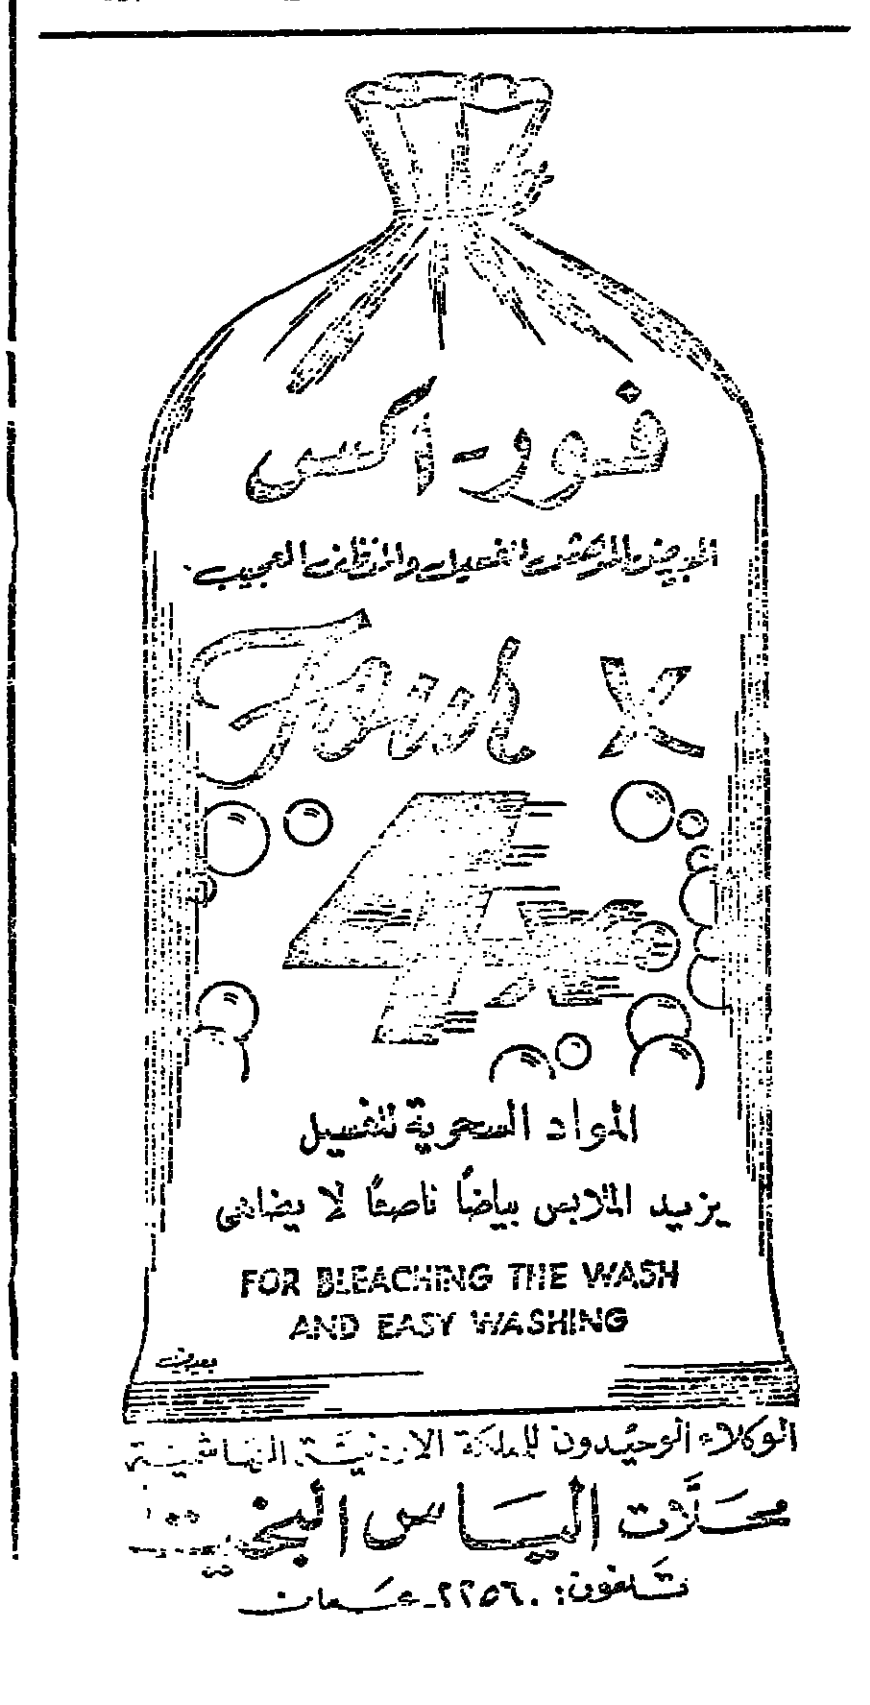 فور-اكس
المبيض المدهش للغسيل والمنظف العجيب
Four X
4x
المواد السحرية للغسيل
يزيد الملابس بياضًا ناصعًا لا يضاهى
FOR BLEACHING THE WASH
AND EASY WASHING
الوكلاء الوحيدون للمملكة الاردنية الهاشمية
محلات الياس البخيت
تلفون: ٢٢٥٦٠ - عمان